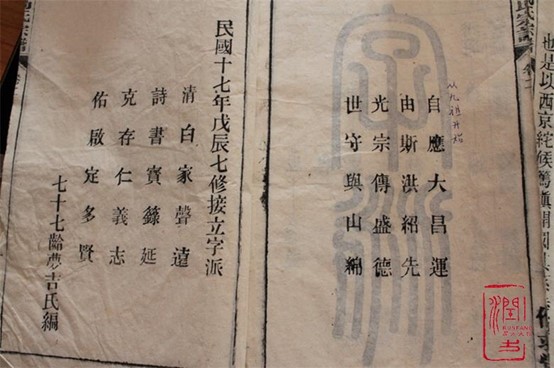 也是以西京
氏宗譜
从九祖开始
自應大昌運
由斯洪紹先
光宗傳盛德
世守與山綿
民國十七年戊辰七修接立字派
清白家聲遠
詩書寶籙延
克存仁義志
佑啟定多賢
七十七齡夢吉氏編